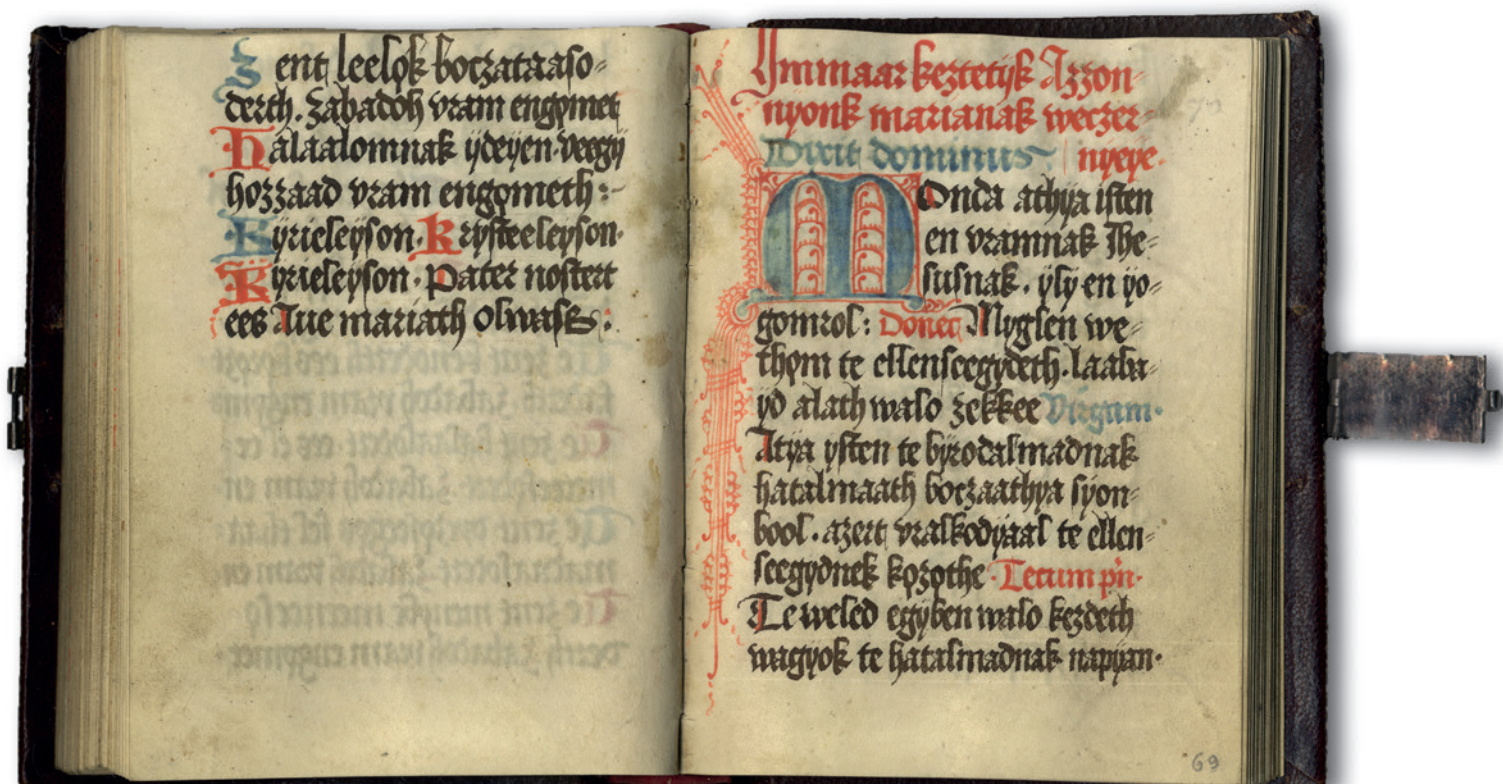 Zent leelok boczataaso⸗
derth. Zabadoh vram engomet
Halaalomnak ÿdeÿen veegÿ
hozzaad vram engometh:
Kÿrieleÿson. Krÿsteeleÿson.
Kÿrieleÿson. Pater nostert
ees Aue mariath olwass.
Immaar keztetÿk Azzon⸗
nÿonk marianak weczer⸗
Dixit dominus nÿeÿe.
MOnda athÿa isten
en vramnak Ihe⸗
susnak. ÿlÿ en ÿo⸗
gomrol: Donec Mÿglen we⸗
thom te ellenseegÿdeth. laaba⸗
ÿd alath walo zekkee Virgam.
Atÿa ÿsten te bÿrodalmadnak
hatalmaath boczaathÿa sÿon⸗
bool. azert vralkodÿaal te ellen⸗
seegÿdnek kozothe. Tecum pn.
Te weled egÿben walo kezdeth
wagÿok te hatalmadnak napÿan.
69